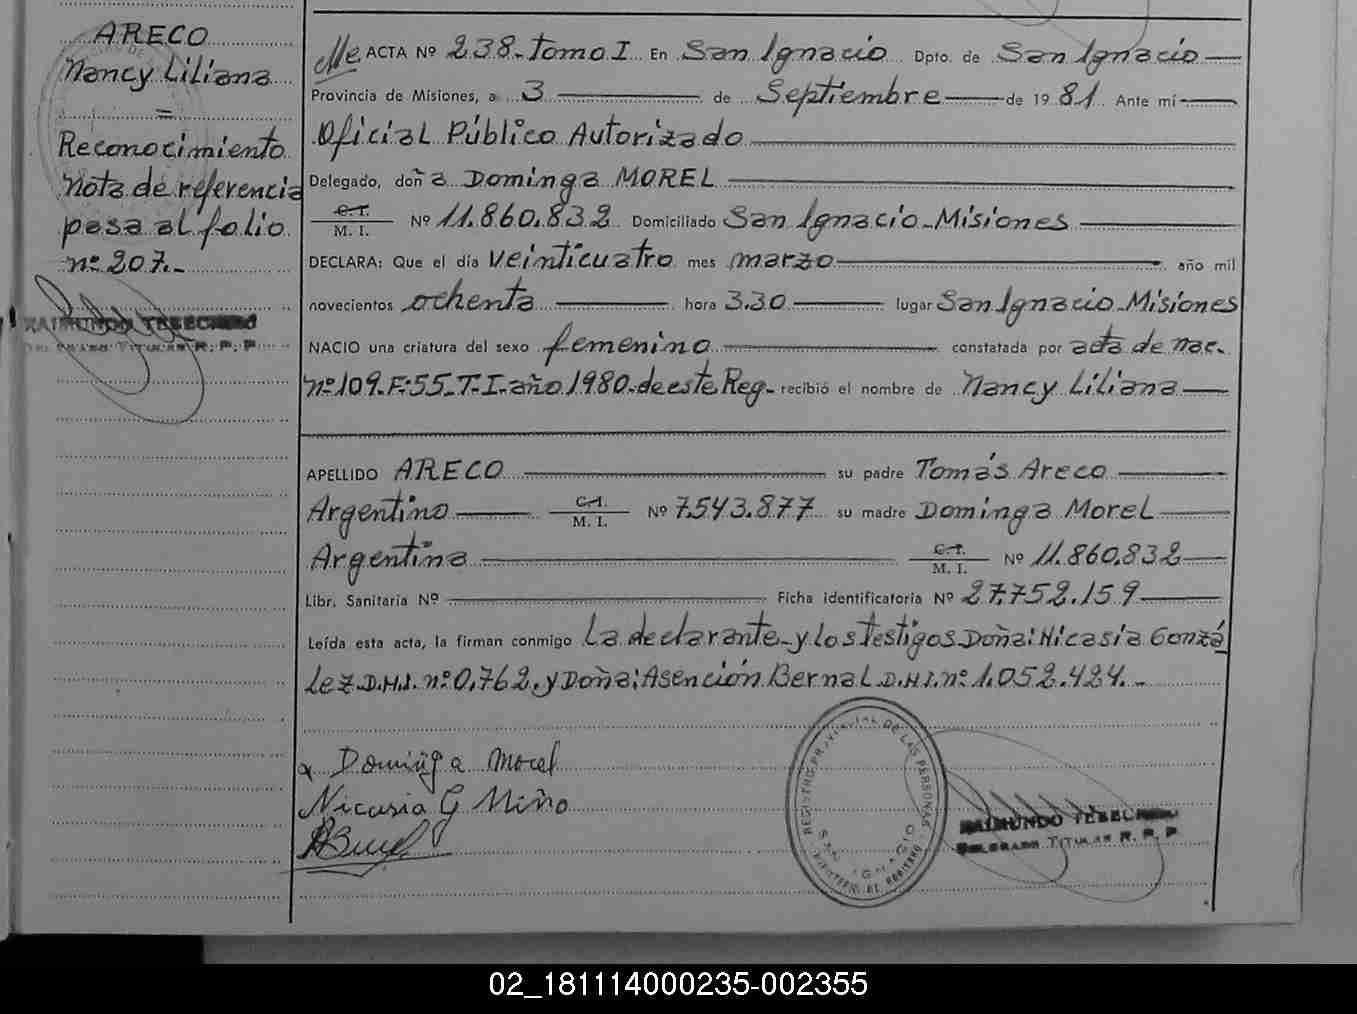 ARECO
Nancy Liliana
=
Reconocimiento
nota de referencia
pasa al folio
nº 207.-
RAIMUNDO
TITULAR R. P. P.
ACTA Nº 238-Tomo I En San Ignacio Dpto. de San Ignacio
Provincia de Misiones, a 3 de Septiembre de 1981 Ante mí
Oficial Público Autorizado
Delegado, doña Dominga MOREL
C.I.
M. I. Nº 11.860.832 Domiciliado San Ignacio-Misiones
DECLARA: Que el día veinticuatro mes marzo año mil
novecientos ochenta hora 3.30 lugar San Ignacio-Misiones
NACIO una criatura del sexo femenino constatada por acta de nac.
nº 109.F:55.T.I-año 1980-de este Reg- recibió el nombre de Nancy Liliana
APELLIDO ARECO su padre Tomás Areco
Argentino C.I.
M. I. Nº 7.543.877 su madre Dominga Morel
Argentina C.I.
M. I. Nº 11.860.832
Libr. Sanitaria Nº Ficha identificatoria Nº 27.752.159
Leída esta acta, la firman conmigo La declarante-y los testigos Doña: Nicasia Gonzá
lez D.N.I. nº 0,762. y Doña: Asención Bernal D.N.I. nº 1.052.424.-
Dominga Morel
Nicasia G Miño
REGISTRO PROVINCIAL DE LAS PERSONAS
SAN IGNACIO
MINISTERIO DE GOBIERNO
RAIMUNDO
DELEGADO TITULAR R. P. P.
02_181114000235-002355